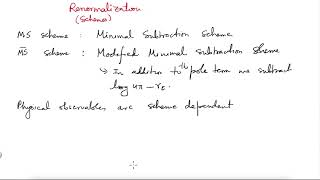 Renormalization
(Scheme)
MS scheme : Minimal Subtraction Scheme
M̅S̅ scheme : Modified Minimal Subtraction Scheme
↳ In addition to the pole term we subtract
log 4π - γE.
Physical observables are scheme dependent